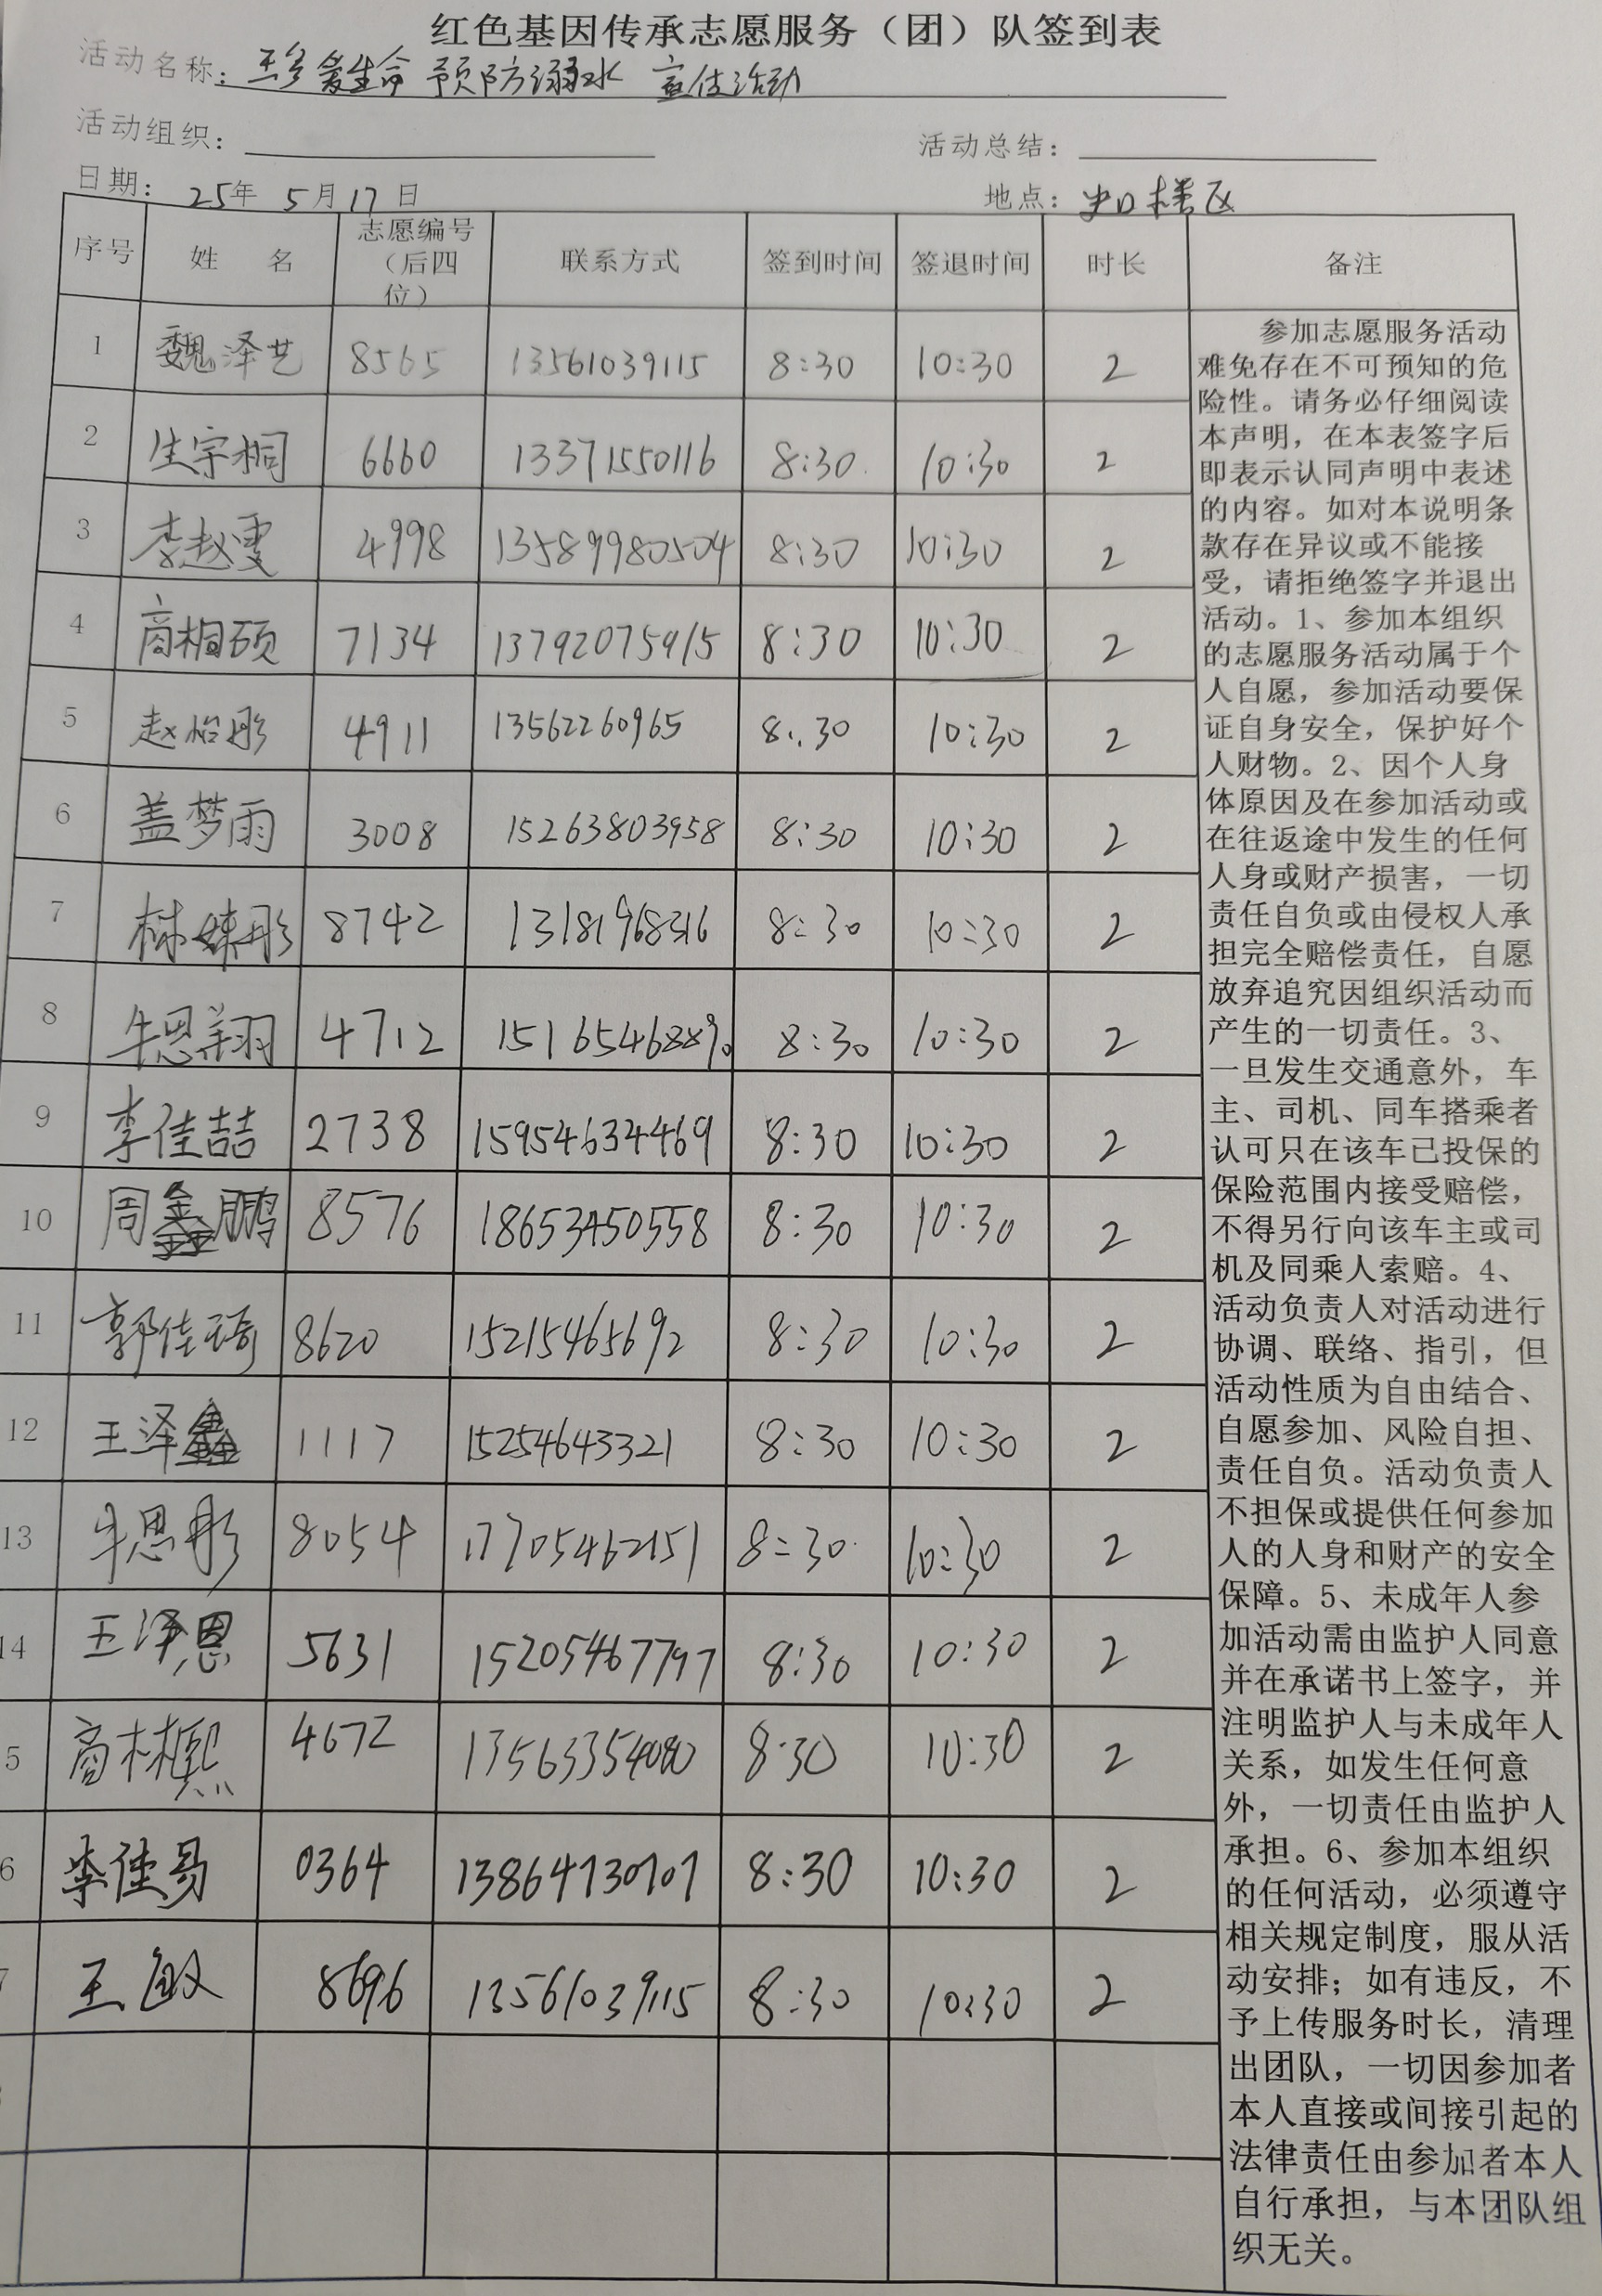 红色基因传承志愿服务（团）队签到表
活动名称：珍爱生命 预防溺水 宣传活动
活动组织：
活动总结：
日期：25年 5月17日
地点：史口楼区
序号 姓 名 志愿编号（后四位） 联系方式 签到时间 签退时间 时长 备注
1 魏泽艺 8565 13561039115 8:30 10:30 2
2 生宇桐 6660 13371550116 8:30 10:30 2
3 李赵雯 4998 13589980504 8:30 10:30 2
4 商桐硕 7134 13792075915 8:30 10:30 2
5 赵怡彤 4911 13562260965 8:30 10:30 2
6 盖梦雨 3008 15263803958 8:30 10:30 2
7 8742 8:30 10:30 2
8 牛恩翔 4712 8:30 10:30 2
9 李佳喆 2738 15954634469 8:30 10:30 2
10 周鑫鹏 8576 18653450558 8:30 10:30 2
11 郭佳琦 8620 15215465692 8:30 10:30 2
12 王泽鑫 1117 15254643321 8:30 10:30 2
13 牛思彤 8054 17705462151 8:30 10:30 2
14 王泽恩 5631 15205467797 8:30 10:30 2
5 商林熙 4672 13563354080 8:30 10:30 2
6 李佳易 0364 13864730707 8:30 10:30 2
7 王敏 8696 13561039115 8:30 10:30 2
参加志愿服务活动
难免存在不可预知的危
险性。请务必仔细阅读
本声明，在本表签字后
即表示认同声明中表述
的内容。如对本说明条
款存在异议或不能接
受，请拒绝签字并退出
活动。1、参加本组织
的志愿服务活动属于个
人自愿，参加活动要保
证自身安全，保护好个
人财物。2、因个人身
体原因及在参加活动或
在往返途中发生的任何
人身或财产损害，一切
责任自负或由侵权人承
担完全赔偿责任，自愿
放弃追究因组织活动而
产生的一切责任。3、
一旦发生交通意外，车
主、司机、同车搭乘者
认可只在该车已投保的
保险范围内接受赔偿，
不得另行向该车主或司
机及同乘人索赔。4、
活动负责人对活动进行
协调、联络、指引，但
活动性质为自由结合、
自愿参加、风险自担、
责任自负。活动负责人
不担保或提供任何参加
人的人身和财产的安全
保障。5、未成年人参
加活动需由监护人同意
并在承诺书上签字，并
注明监护人与未成年人
关系，如发生任何意
外，一切责任由监护人
承担。6、参加本组织
的任何活动，必须遵守
相关规定制度，服从活
动安排；如有违反，不
予上传服务时长，清理
出团队，一切因参加者
本人直接或间接引起的
法律责任由参加者本人
自行承担，与本团队组
织无关。